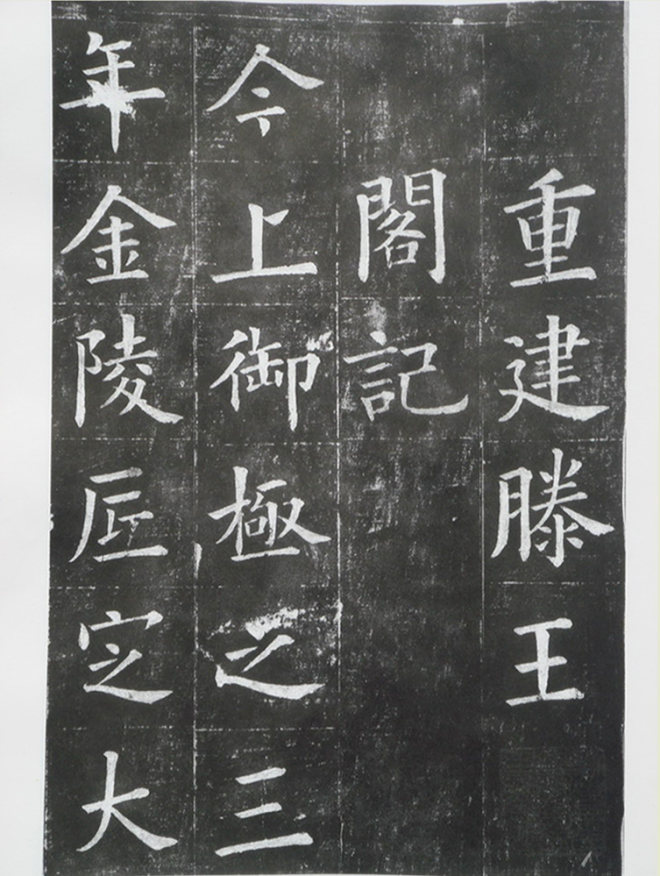 重建滕王
閣記
今上御極之三
年金陵厎定大